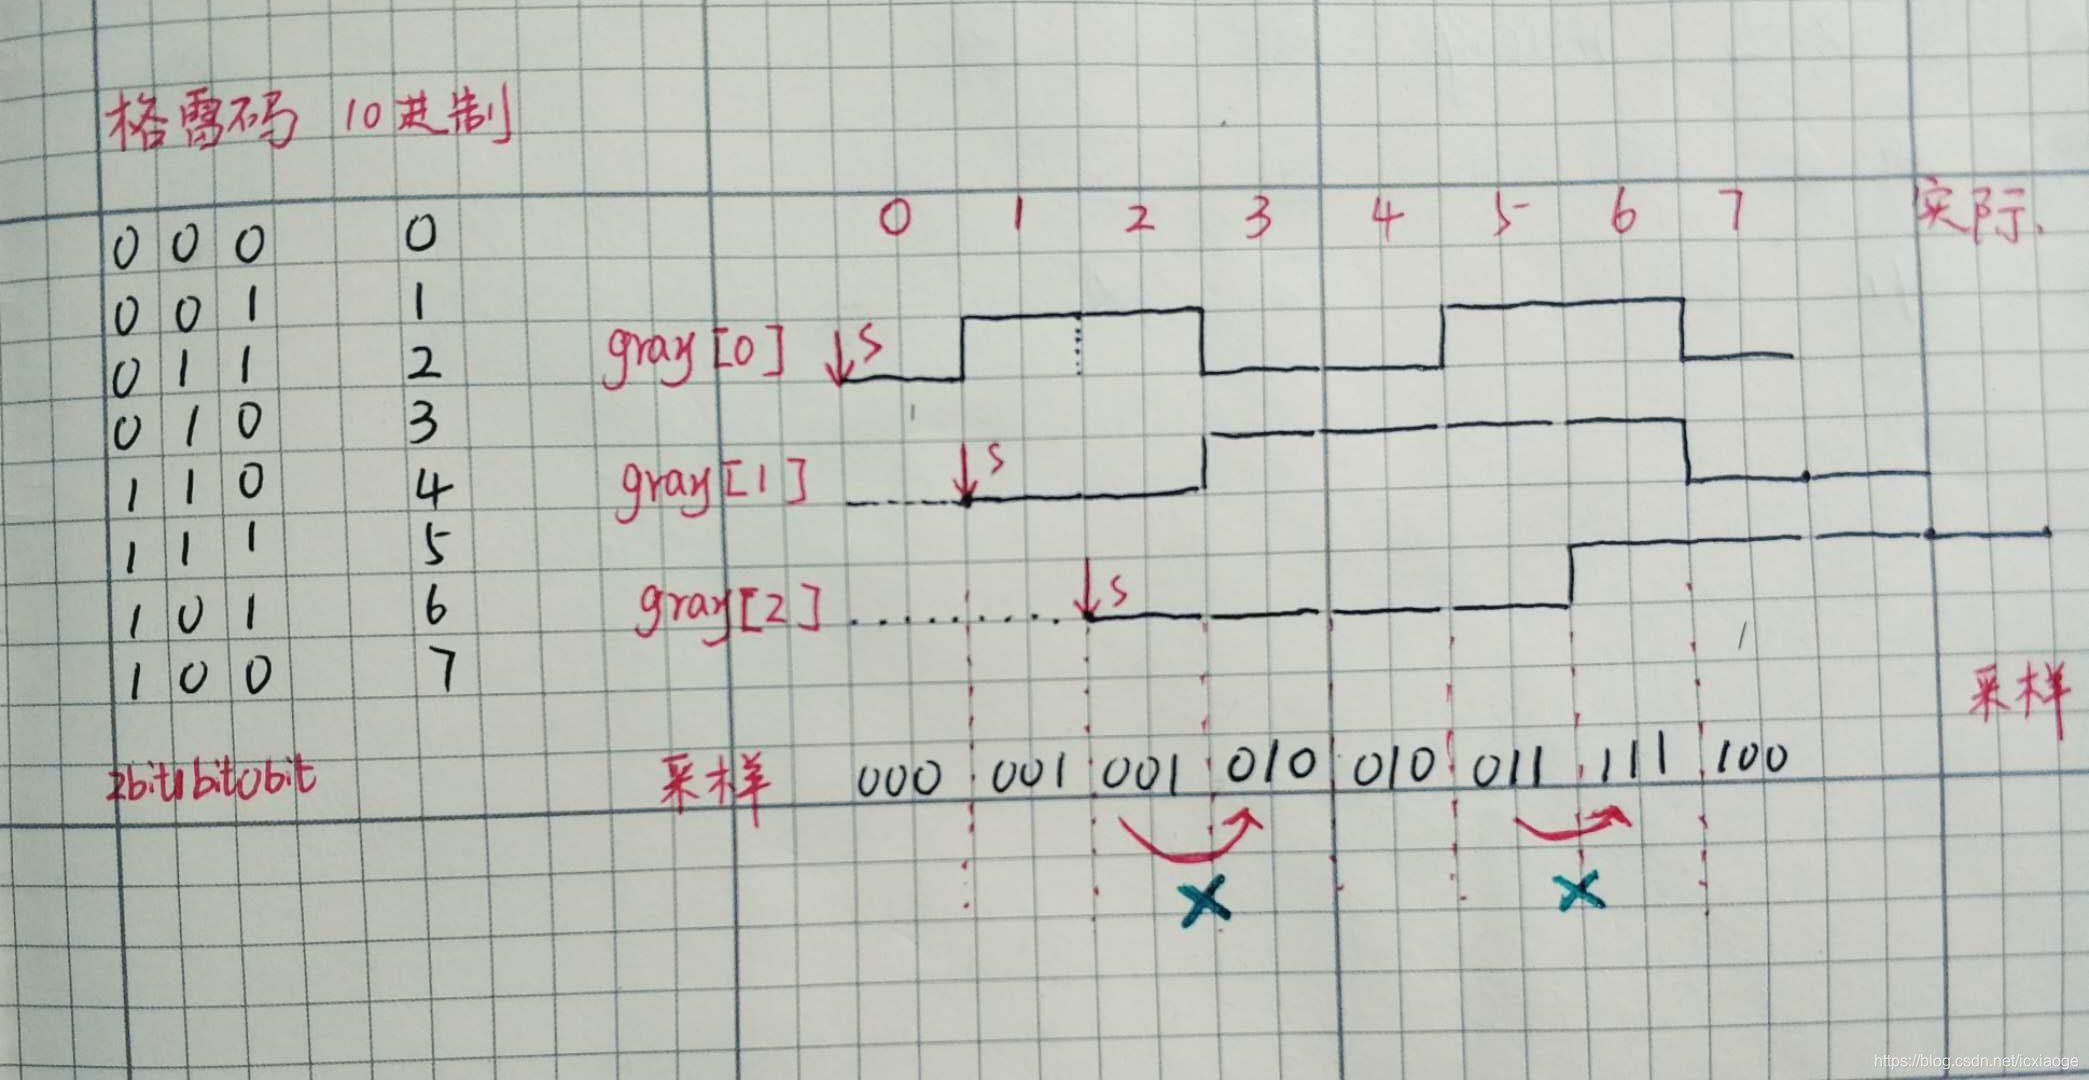 格雷码 10进制
0 1 2 3 4 5 6 7 实际.
0 0 0 0
0 0 1 1
0 1 1 2
0 1 0 3
1 1 0 4
1 1 1 5
1 0 1 6
1 0 0 7
gray[0] S
gray[1] S
gray[2] S
采样
2bit1bit0bit
采样 000 001 001 010 010 011 111 100
https://blog.csdn.net/icxiaoge